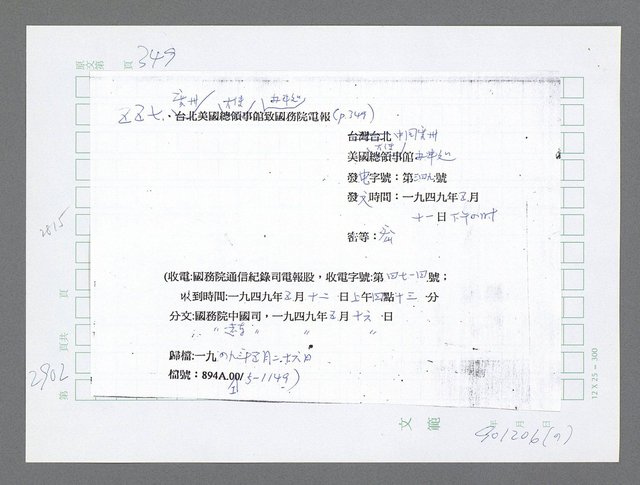 原文第 頁 349
廣州 大使 辦事處
五五七、台北美國總領事館致國務院電報(p.349)
台灣台北 中國廣州
大使
美國總領事館 辦事處
發電字號：第 號
發文時間：一九四九年五月
十一日下午 時
密等：密
2815
(收電:國務院通信紀錄司電報股，收電字號:第四七一四號；
收到時間:一九四九年五月十二日上午四點十三分
分文:國務院中國司，一九四九年五月十六日
〃 〃 〃 〃
歸檔:一九四九年五月二十六日
檔號：894A.00/5-1149)
2902
第 頁共 頁
12 X 25 = 300
文 範
年 月 日
901206(9)